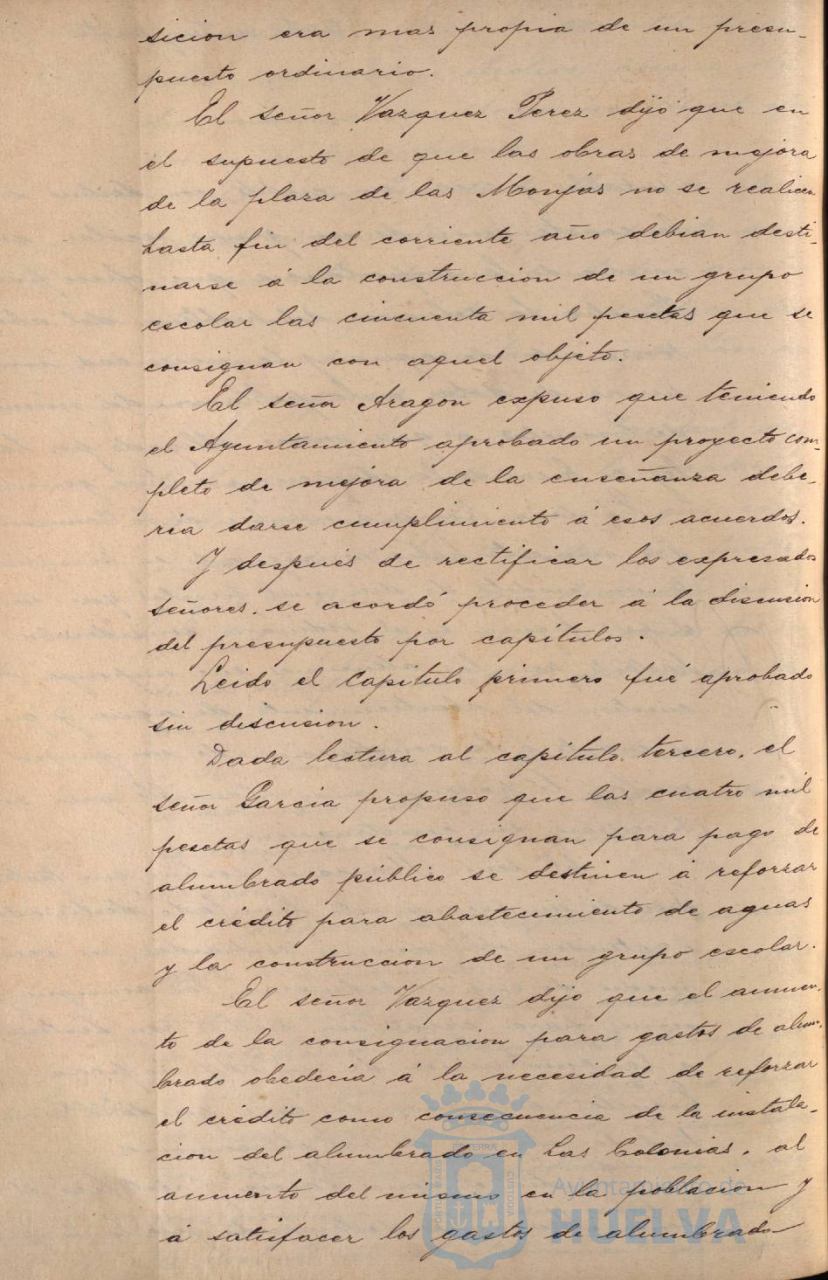 sicion era mas propia de un presu-
puesto ordinario.
El señor Vazquez Perez dijo que en
el supuesto de que las obras de mejora
de la plaza de las Monjas no se realicen
hasta fin del corriente año debian desti-
narse á la construccion de un grupo
escolar las cincuenta mil pesetas que se
consignan con aquel objeto.
El señor Aragon expuso que teniendo
el Ayuntamiento aprobado un proyecto com-
pleto de mejora de la enseñanza debe-
ria darse cumplimiento á esos acuerdos.
Y después de rectificar los expresados
señores, se acordó proceder á la discusion
del presupuesto por capítulos.
Leido el Capitulo primero fué aprobado
sin discusion.
Dada lectura al capitulo tercero, el
señor Garcia propuso que las cuatro mil
pesetas que se consignan para pago de
alumbrado público se destinen á reforzar
el crédito para abastecimiento de aguas
y la construccion de un grupo escolar.
El señor Vazquez dijo que el aumen-
to de la consignacion para gastos de alum-
brado obedecia á la necesidad de reforzar
el crédito como consecuencia de la instala-
cion del alumbrado en Las Colonias, al
aumento del mismo en la poblacion y
á satisfacer los gastos de alumbrado
Ayuntamiento de
HUELVA